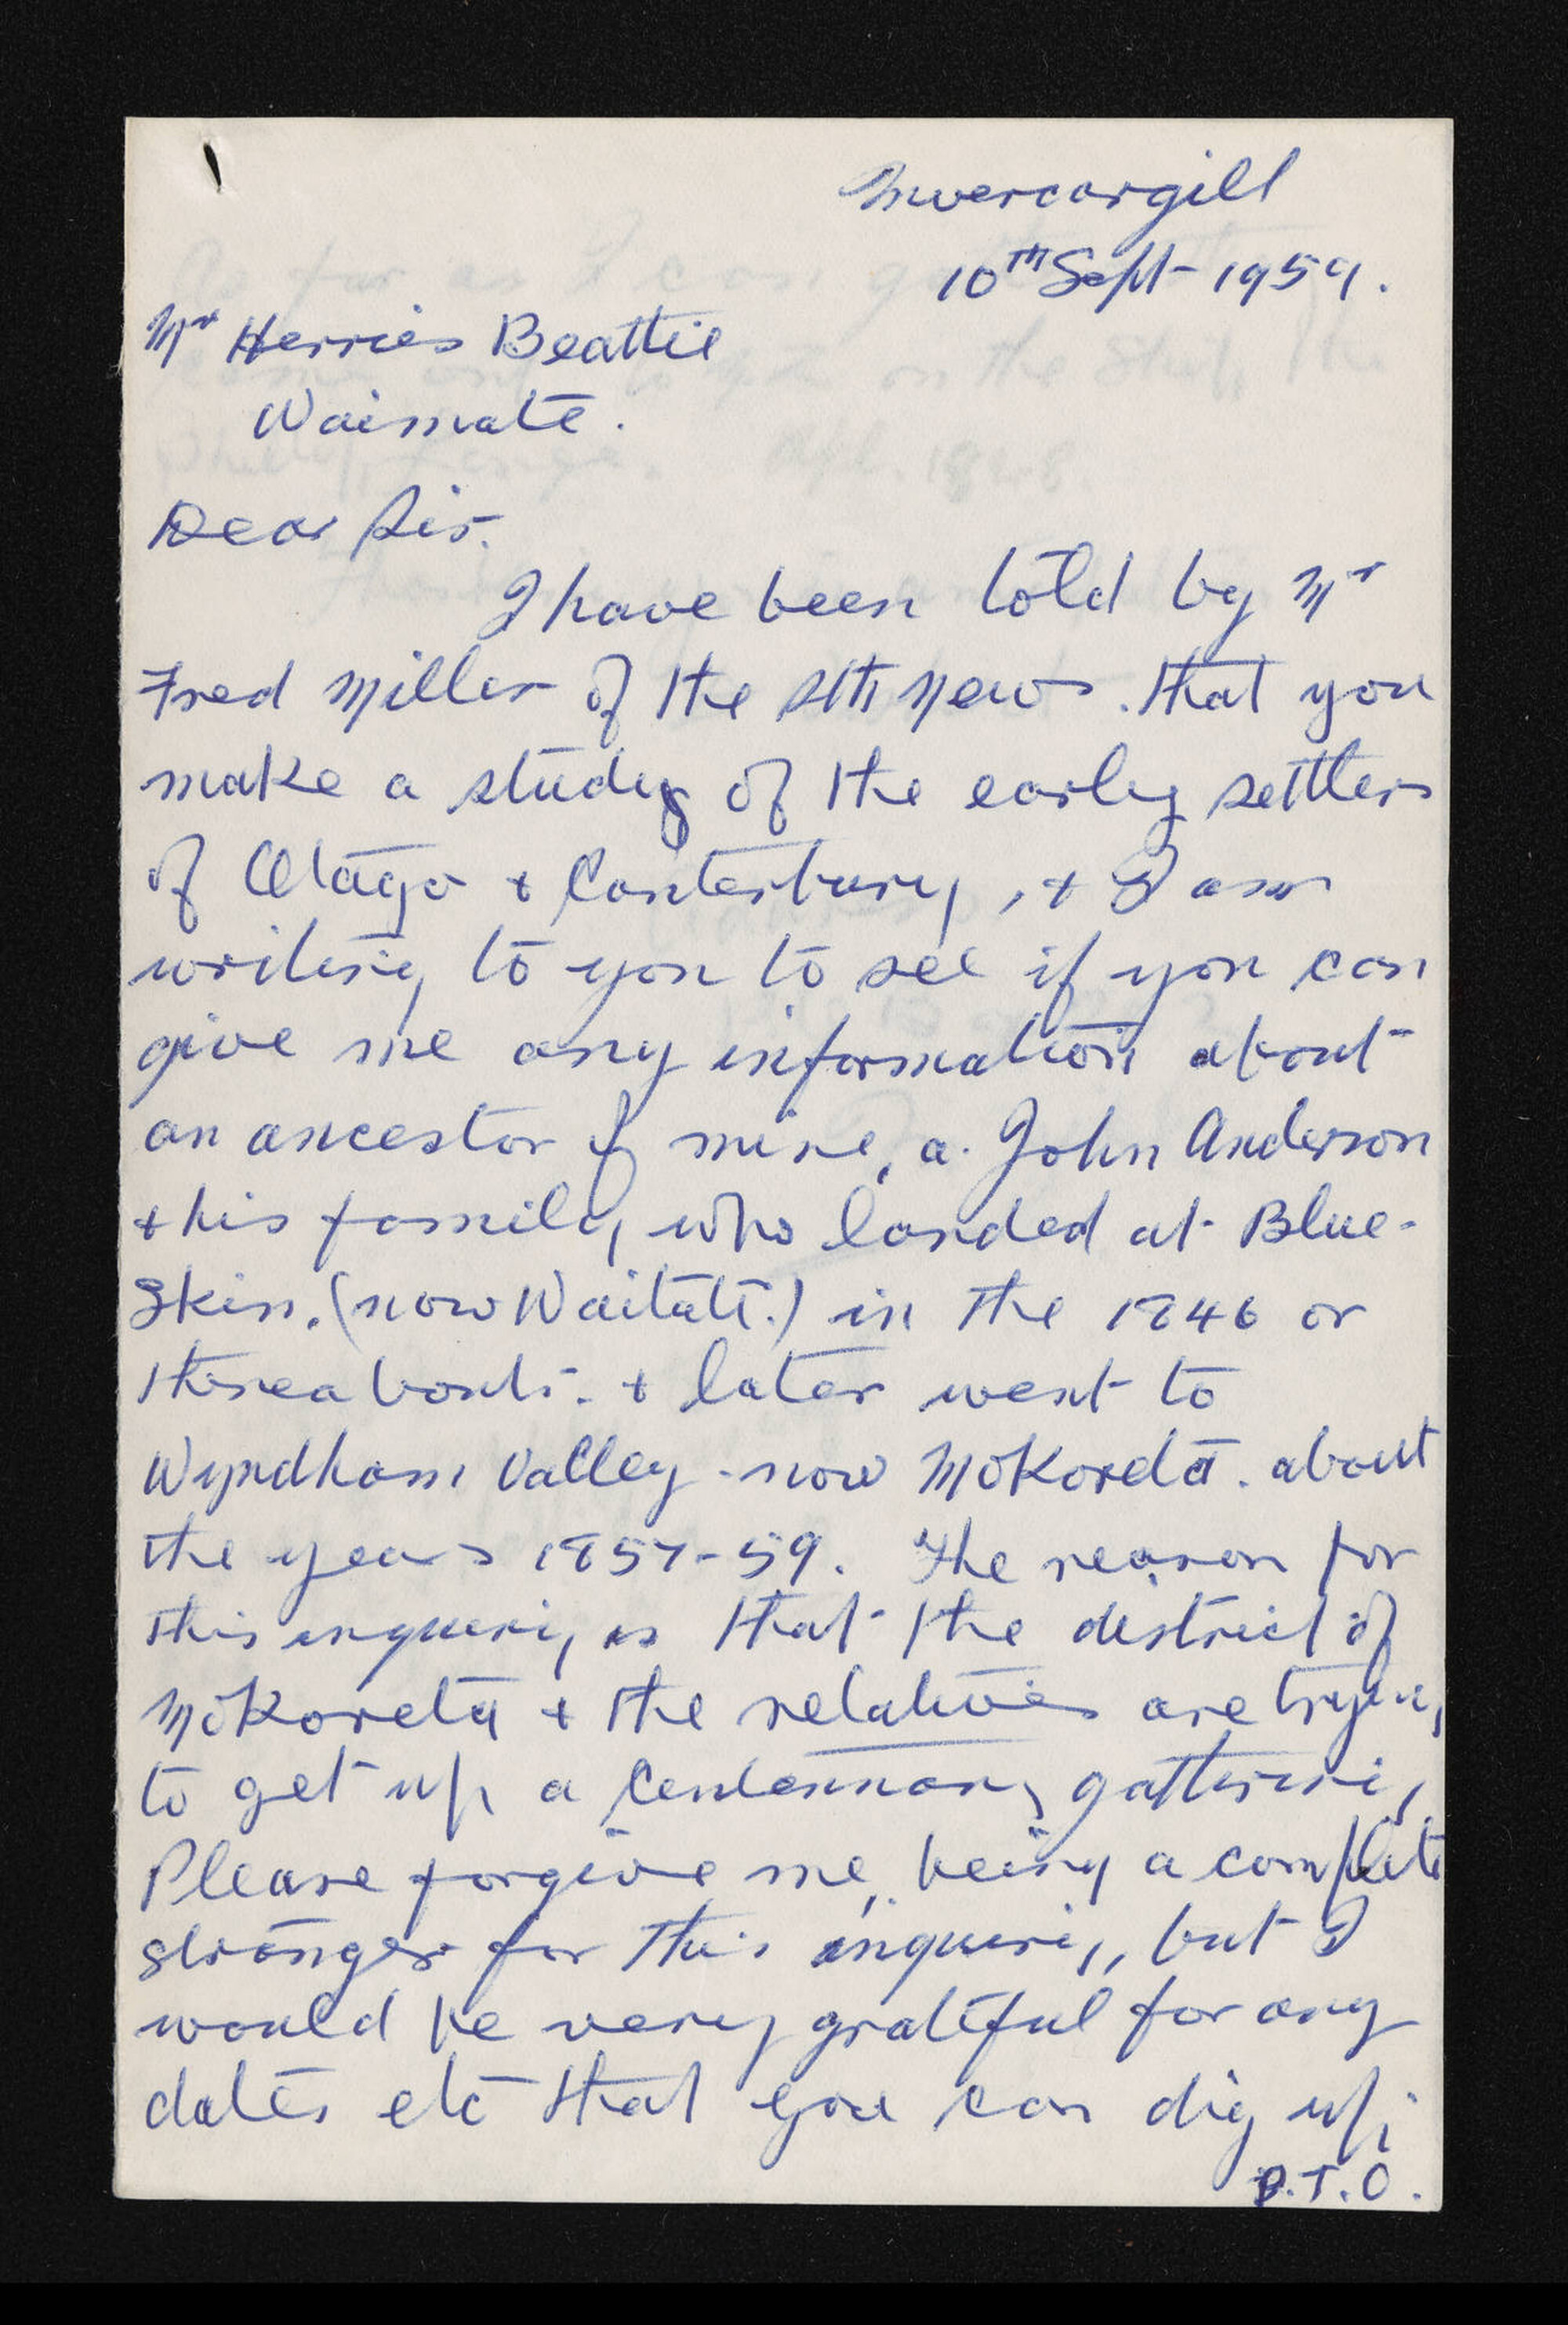 Invercargill
10th Sept- 1959.
Mr Herries Beattie
Waimate.
Dear Sir.
I have been told by Mr
Fred Miller of the Sth News. that you
make a study of the early settlers
of Otago + Canterbury, + I am
writing to you to see if you can
give me any information about
an ancestor of mine, a. John Anderson
+ his family, who landed at Blue-
Skin. (now Waitati.) in the 1846 or
thereabouts. + later went to
Wyndham Valley - now Mokoreta. about
the years 1857-59. The reason for
this inquiry is that the district of
Mokoreta + the relatives are trying
to get up a Centennary gathering,
Please forgive me, being a complete
stranger for this inquiry, but I
would be very grateful for any
dates etc that you can dig up,
P.T.O.